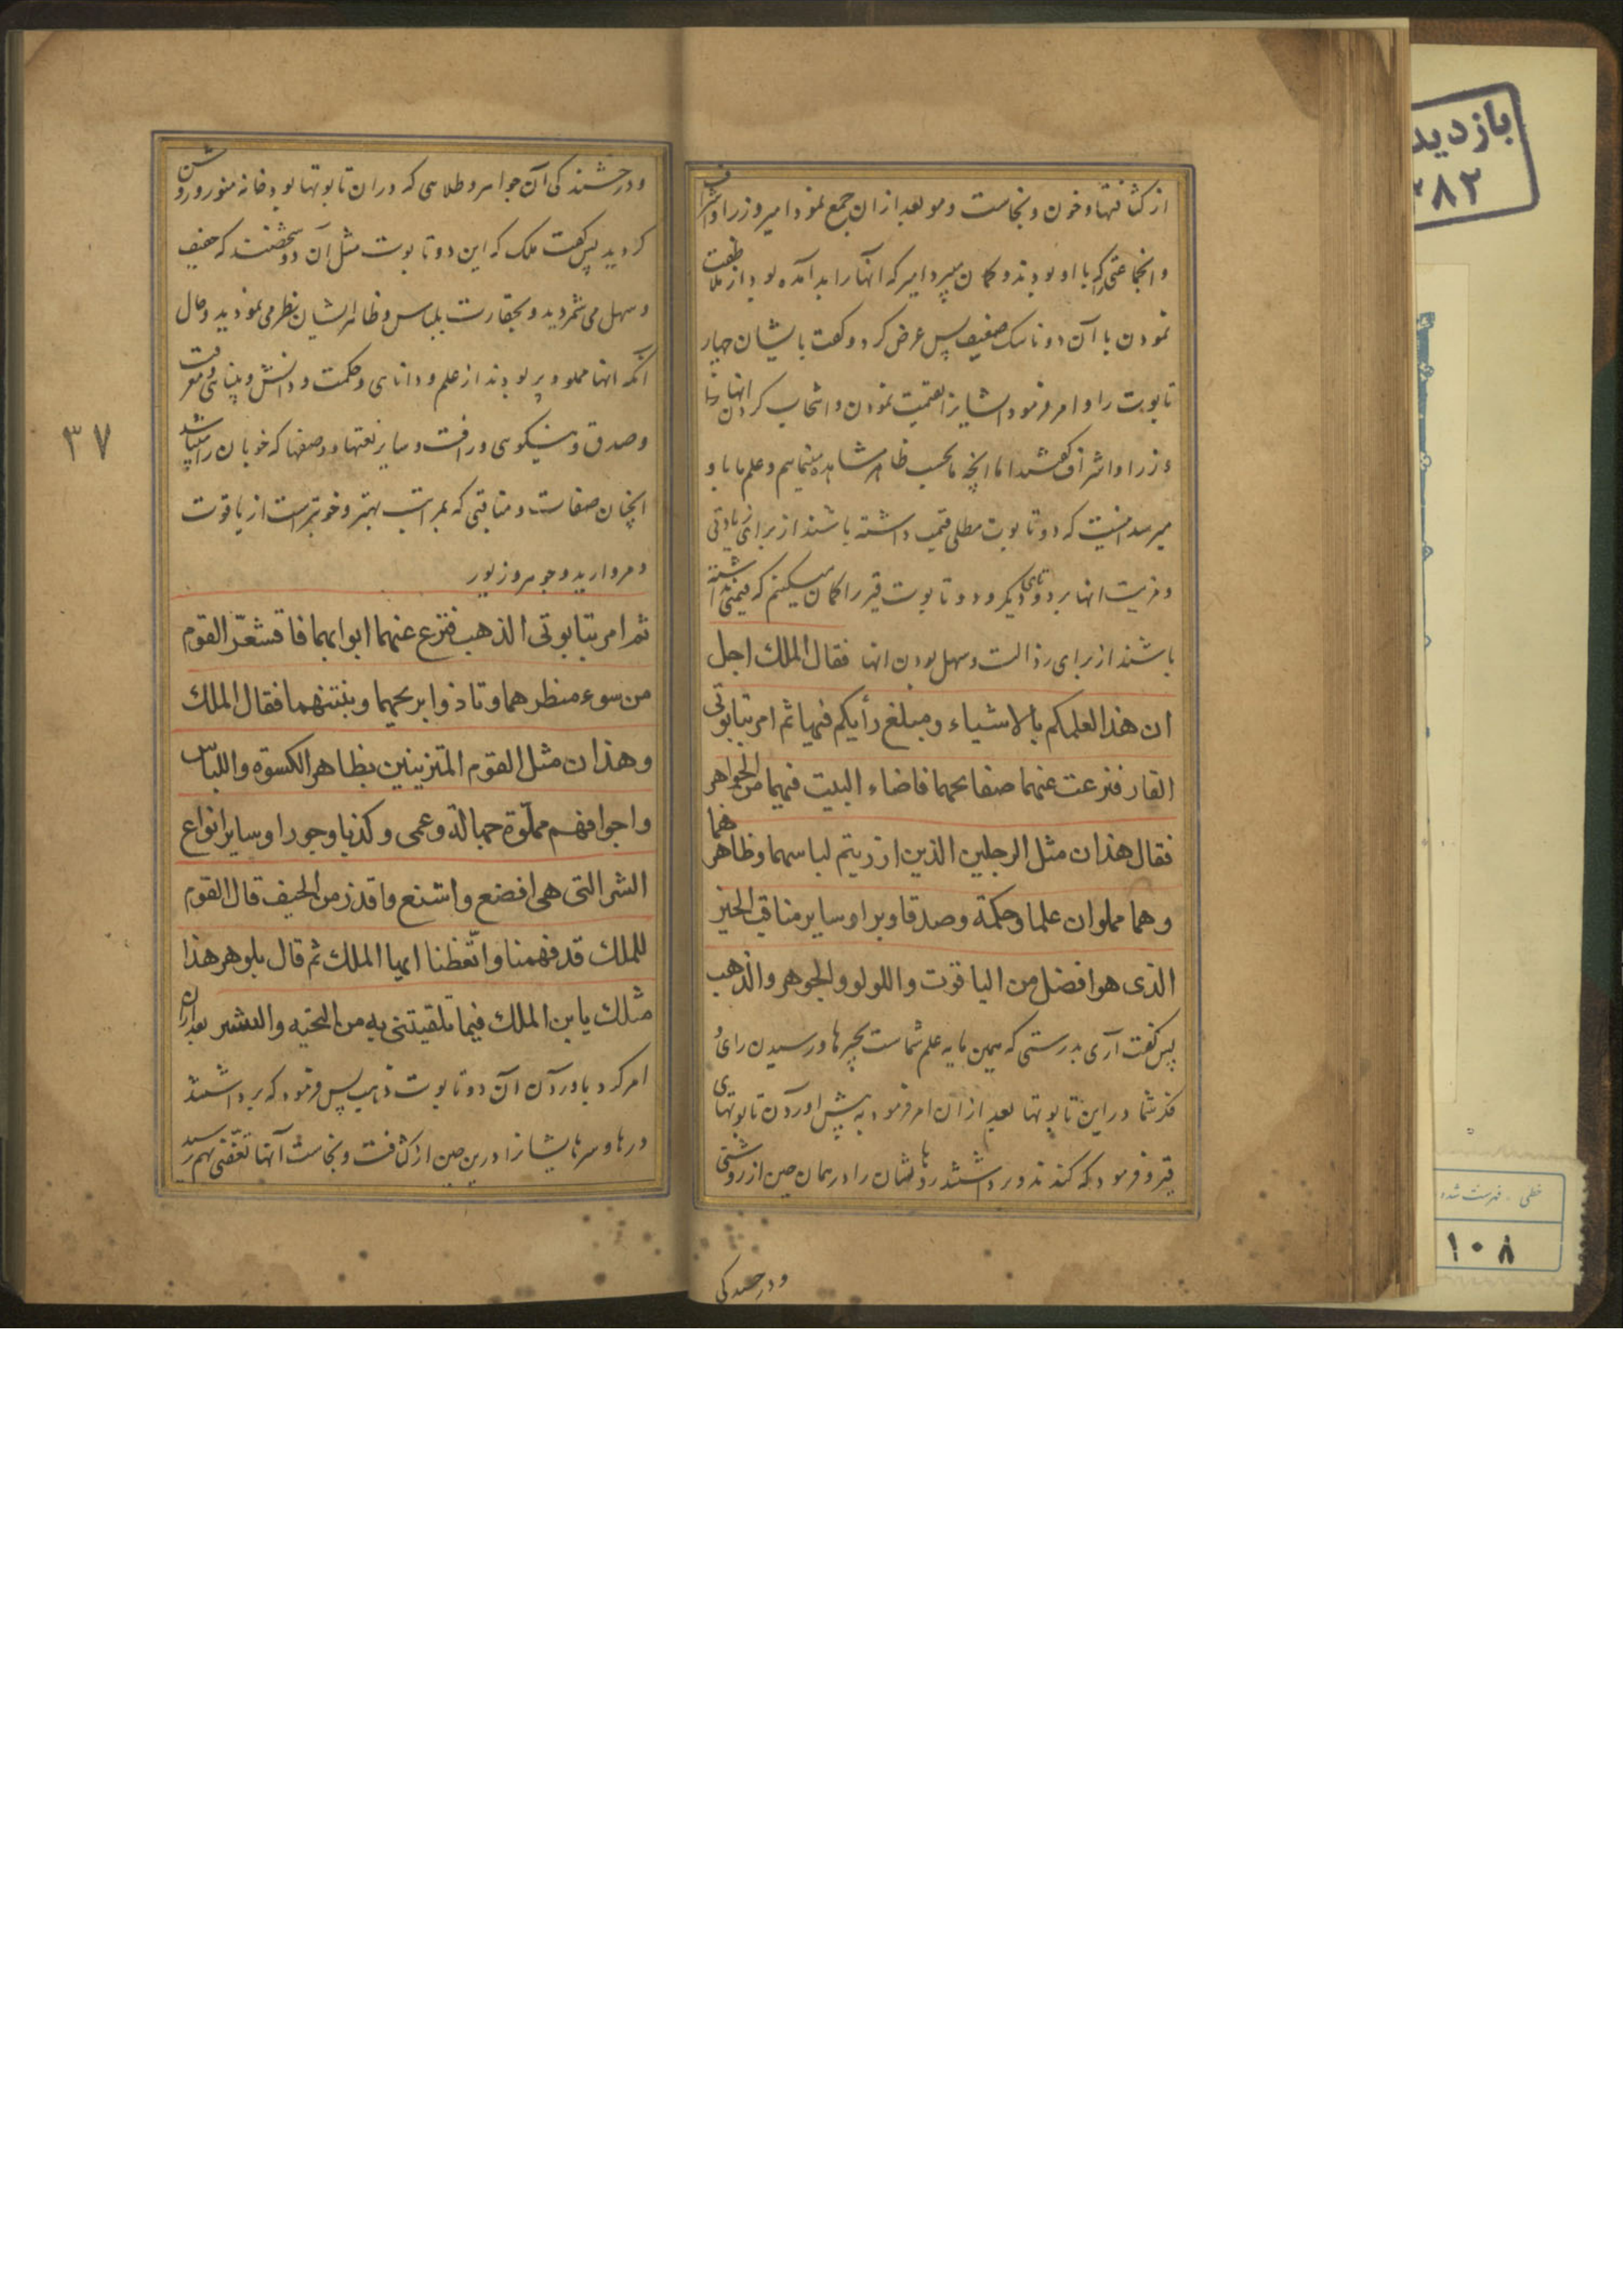 از کثافتها و خون و نجاست و مو بعد از ان جمع نمود امیر وزرا و اشراف
و انجماعتی که با او بودند و کمان میبرد امیر که آنها را بد آمده بود از ملاطفت
نمودن با آن دو ناسک ضعیف پس عرض کرد و کفت بایشان چهار
تابوت را و امر فرمود ایشانرا بقیمت نمودن و انتخاب کردن انها
وزرا و اشراف کفتند اما انچه ما بحسب ظاهر مشاهده مینماییم و علم ما باو
میرسد اینست که دو تابوت مطلی قیمت داشته باشند از برای زیادتی
و مزیت انها بر دوتای دیکر و دو تابوت قیر را کمان میکنیم که قیمتی نداشته
باشند از برای رذالت و سهل بودن انها فقال الملک اجل
ان هذا لعلمکم بالاشیاء و مبلغ رأیکم فیها ثم امر بتابوتی
القار فنزعت عنهما صفایحهما فاضاء البیت فیهما من الجواهر
فقال هذان مثل الرجلین الذین ازریتم لباسهما و ظاهرهما
و هما مملوان علما و حکمة و صدقا و برا و سایر مناقب الخیر
الذی هو افضل من الیاقوت و اللولو و الجوهر و الذهب
پس کفت آری بدرستی که همین مایه علم شماست بچیرها و رسیدن رای
فکر شما در این تابوتها بعد از ان امر فرمود به پیش اوردن تابوتهای
قیر و فرمود که کندند و برداشتند درهاشان را در همان حین از روشنی
و درخشندکی
و درخشندکی آن جواهر و طلاهی که در ان تابوتها بود خانه منور و روشن
کردید پس کفت ملک که این دو تابوت مثل آن دو شخصند که ضعیف
و سهل می شمردید و بحقارت بلباس و ظاهر ایشان نظر می نمودید و حال
آنکه انها مملو و پر بودند از علم و دانای و حکمت و دانش و بینای و معرفت
و صدق و نیکوی و رافت و سایر نعتها و وصفها که خوبان را میباشد
انچنان صفات و مناقبی که بمراتب بهتر و خوبتر است از یاقوت
و مروارید و جوهر و زیور
ثم امر بتابوتی الذهب فنزع عنهما ابوابهما فاقشعرّ القوم
من سوء منظرهما و تاذوا بریحهما و بنتنهما فقال الملک
و هذان مثل القوم المتزینین بظاهر الکسوة و اللباس
و اجوافهم مملّوة جهالة و عمی و کذبا و جورا و سایر انواع
الشر التی هی افضع و اشنع و اقذر من الجیف قال القوم
للملک قد فهمنا و اتّعظنا ایها الملک ثم قال بلوهر هذا
مثلک یا بن الملک فیما تلقیتنی به من التحیه و البشر بعد از ان
امر کرد باوردن آن دو تابوت ذهب پس فرمود که برداشتند
درها و سرهایشانرا درین حین از کثافت و نجاست آنها تعفّنی بهم رسید
۳۷
بازدید
۲۸۲
خطی . فهرست شده
۱۰۸